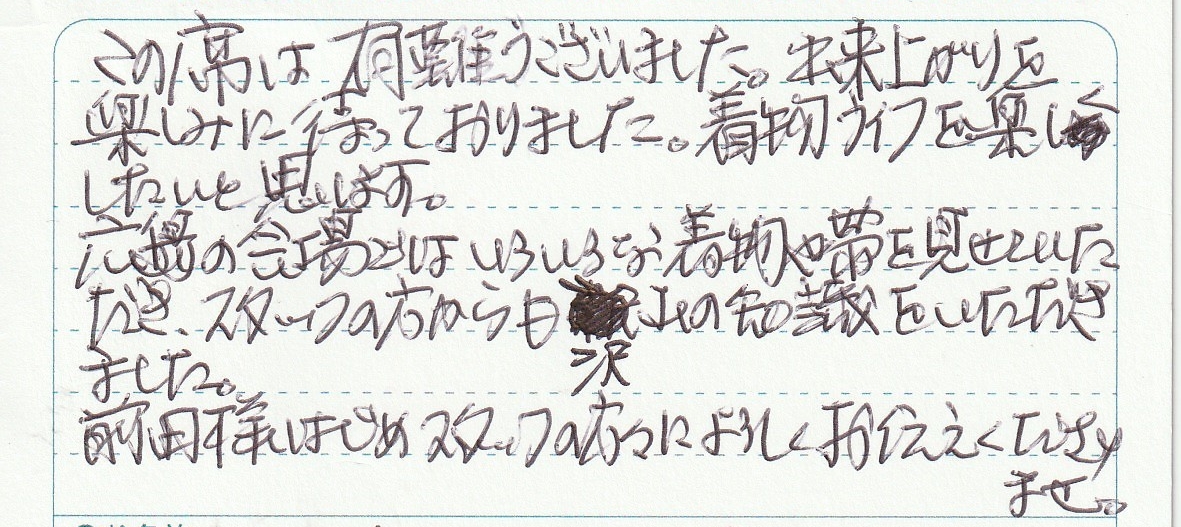 この度は有難うございました。出来上がりを
楽しみに待っておりました。着物ライフを楽しく
したいと思います。
広島の会場ではいろいろな着物や帯を見せていた
だき、スタッフの方からも沢山の知識をいただき
ました。
前田様はじめスタッフの方々によろしくお伝えくださり
ませ。